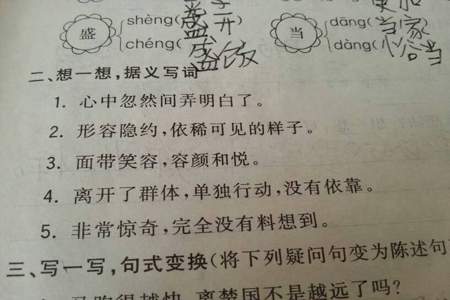 shèng(盛开 dāng(当家
盛 当
chéng(盛饭 dàng(恰当
二、想一想，据义写词
1. 心中忽然间弄明白了。
2. 形容隐约，依稀可见的样子。
3. 面带笑容，容颜和悦。
4. 离开了群体，单独行动，没有依靠。
5. 非常惊奇，完全没有料想到。
三、写一写，句式变换(将下列疑问句变为陈述句
马跑得越快，离楚国不是越远了吗？